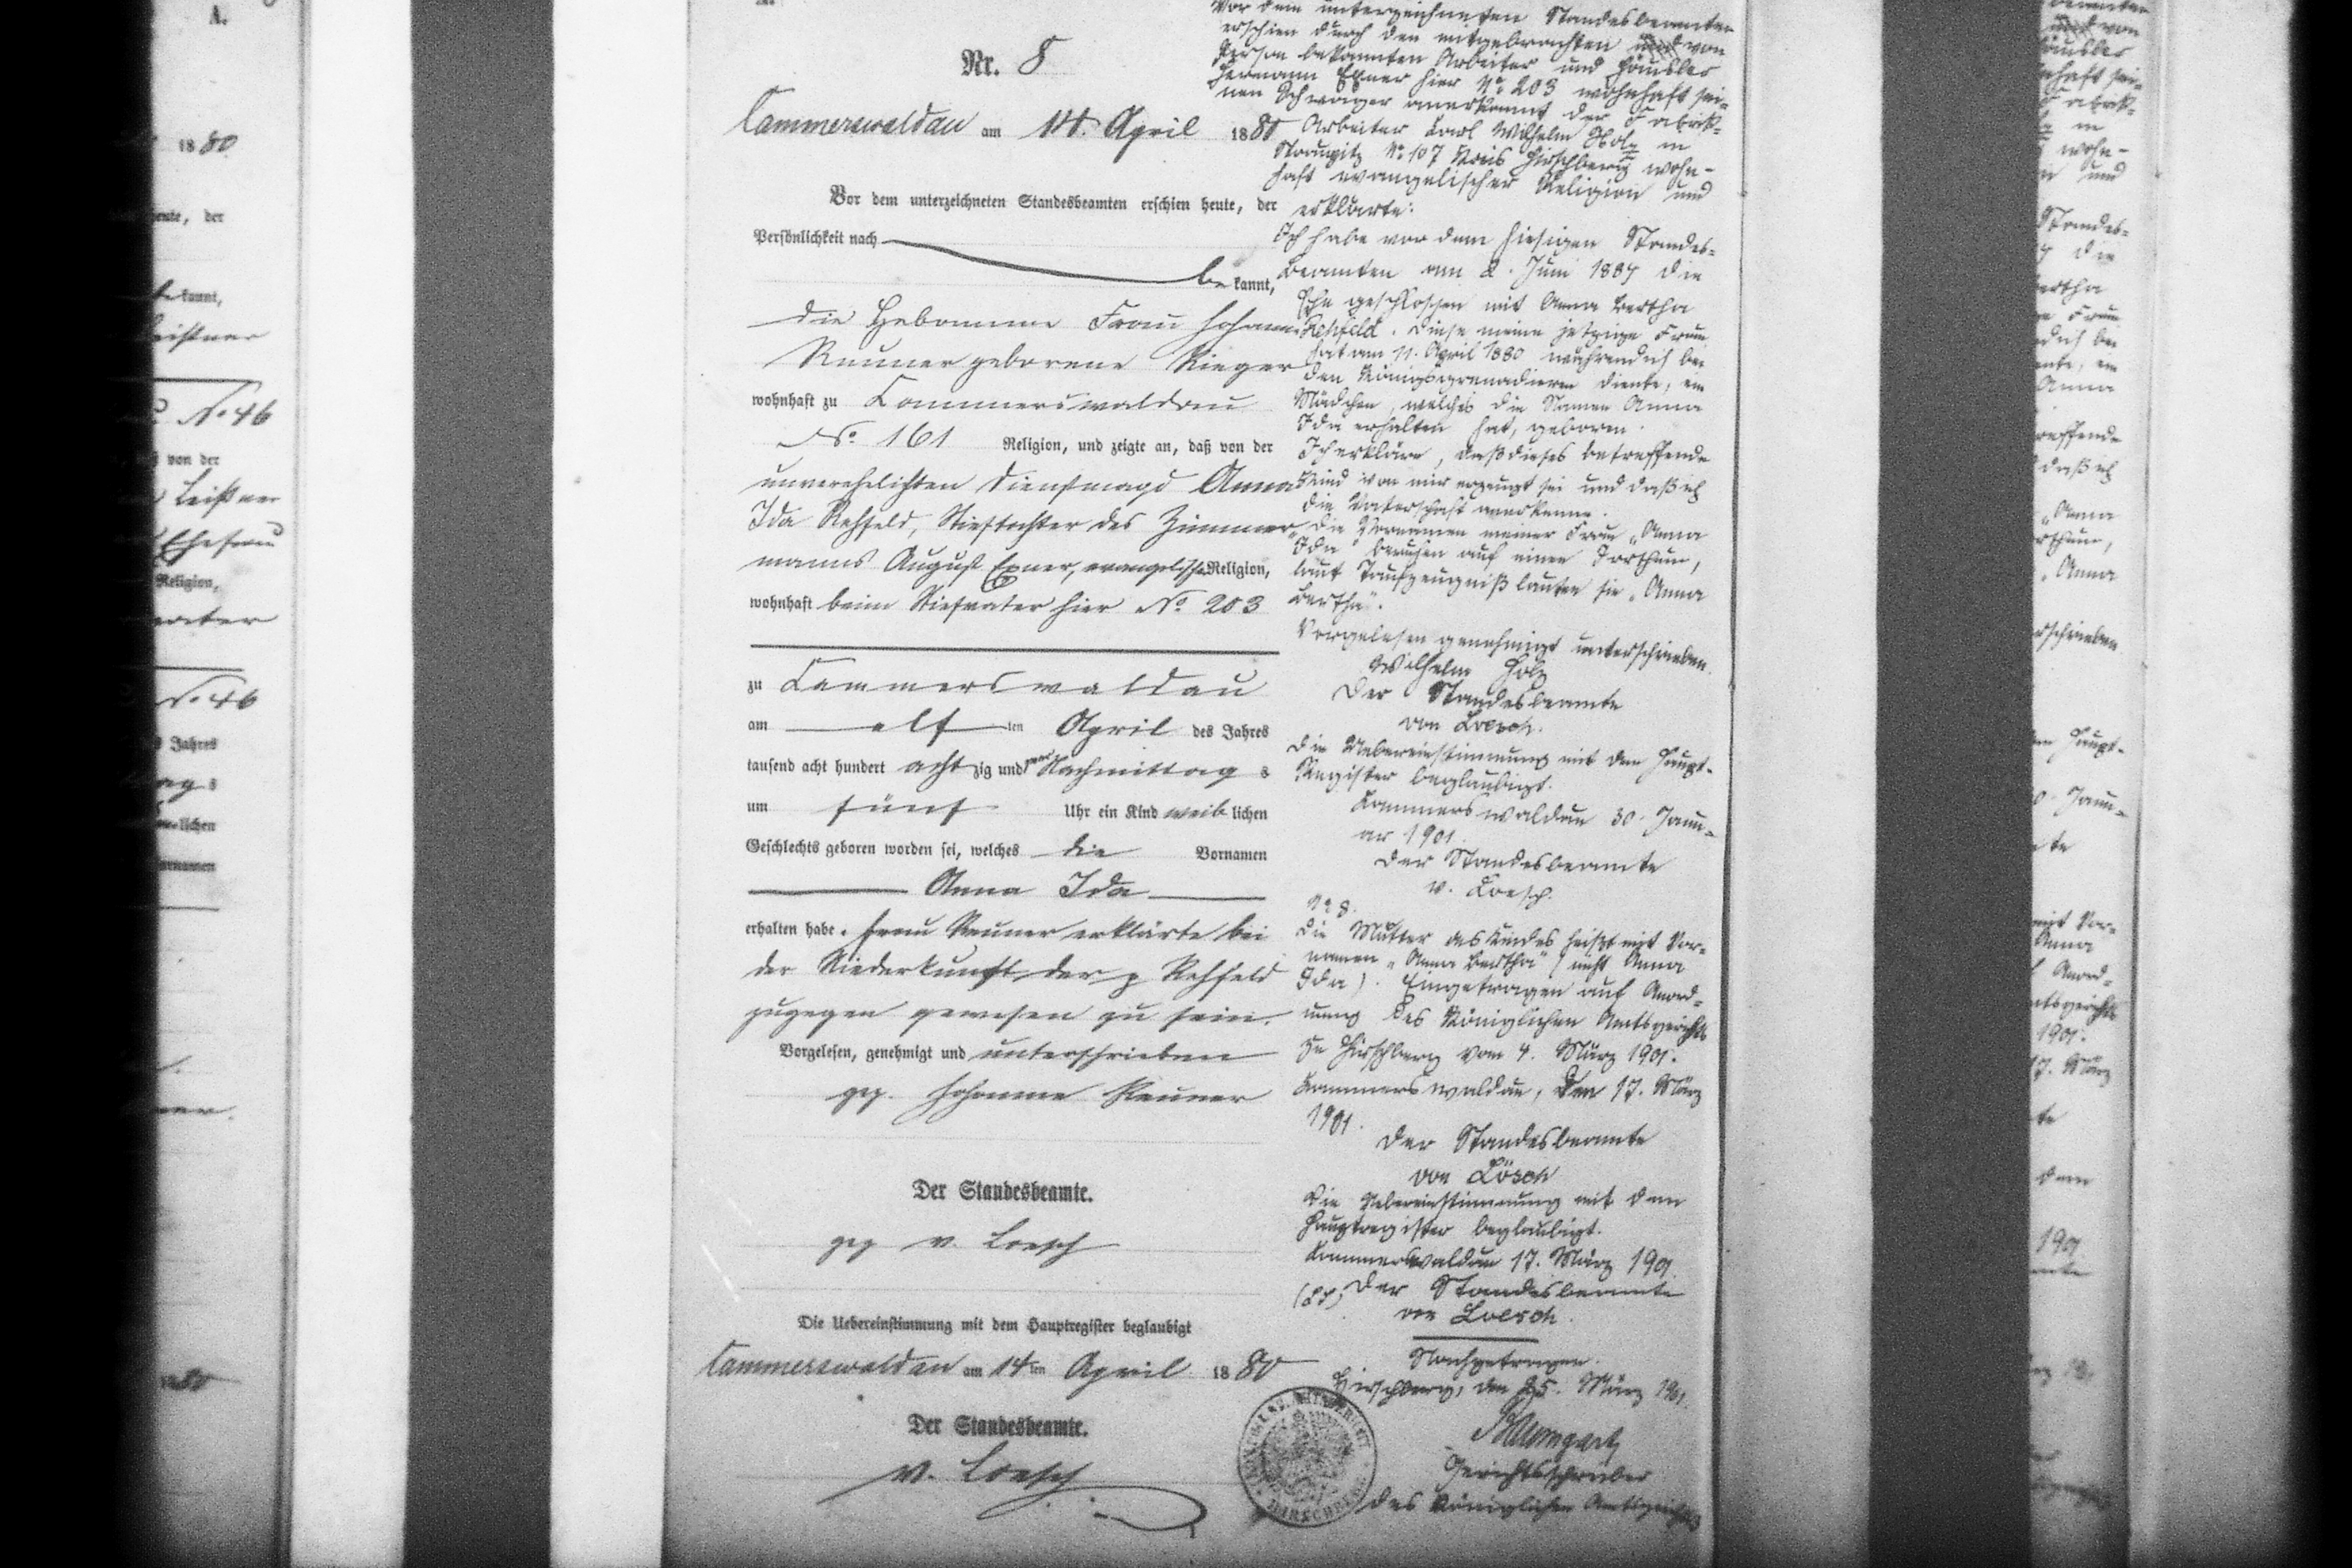 A.
Nr. 8
Cammerswaldau am 14. April 1880
Vor dem unterzeichneten Standesbeamten erschien heute, der
Persönlichkeit nach
bekannt,
die Hebamme Frau Johanne
Reuner geborene Rieger
wohnhaft zu Cammerswaldau
No. 161 Religion, und zeigte an, daß von der
unverehelichten Dienstmagd Anna
Ida Rehfeld, Stieftochter des Zimmer-
manns August Exner, evangelischer Religion,
wohnhaft beim Stiefvater hier No 203
zu Cammerswaldau
am elf ten April des Jahres
tausend acht hundert achtzig und zwar Nachmittags
um fünf Uhr ein Kind weiblichen
Geschlechts geboren worden sei, welches die Vornamen
Anna Ida
erhalten habe. Frau Reuner erklärte bei
der Niederkunft der p Rehfeld
zugegen gewesen zu sein.
Vorgelesen, genehmigt und unterschrieben
gez. Johanne Reuner
Der Standesbeamte.
gez v. Loesch
Die Uebereinstimmung mit dem Hauptregister beglaubigt
Cammerswaldau am 14ten April 1880
Der Standesbeamte.
v. Loesch
Vor dem unterzeichneten Standesbeamten
erschien durch den mitgebrachten von
Person bekannten Arbeiter und Häusler
Hermann Exner hier No 203 wohnhaft sei-
nen Schwager anerkannt der Fabrik-
Arbeiter Carl Wilhelm Holz in
Straupitz No 107 Kreis Hirschberg wohn-
haft evangelischer Religion und
erklärte:
Ich habe vor dem hiesigen Standes-
beamten am 2. Juni 1884 die
Ehe geschlossen mit Anna Bertha
Rehfeld. Diese meine jetzige Frau
hat am 11. April 1880 während ich bei
den Königsgrenadieren diente, ein
Mädchen, welches die Namen Anna
Ida erhalten hat, geboren.
Ich erkläre, daß dieses betreffende
Kind von mir erzeugt sei und daß ich
die Vaterschaft anerkenne.
Die Vornamen meiner Frau „Anna
Ida" beruhen auf einen Irrthum,
laut Taufzeugniß lauten sie „Anna
Bertha".
Vorgelesen genehmigt unterschrieben.
Wilhelm Holz
Der Standesbeamte
von Loesch.
Die Uebereinstimmung mit dem Haupt-
Register beglaubigt.
Cammerswaldau 30. Janu-
ar 1901
Der Standesbeamte
v. Loesch.
No 8.
Die Mutter des Kindes heißt mit Vor-
namen „Anna Bertha" (nicht Anna
Ida). Eingetragen auf Anord-
nung des Königlichen Amtsgerichts
zu Hirschberg vom 4. März 1901.
Cammerswaldau, den 17. März
1901.
Der Standesbeamte
von Lösch
Die Uebereinstimmung mit dem
Hauptregister beglaubigt.
Cammerswaldau 17. März 1901
(LS) Der Standesbeamte
von Loesch.
Nachgetragen.
Hirschberg, den 25. März 1901.
Baumgart
Gerichtsschreiber
des Königlichen Amtsgerichts